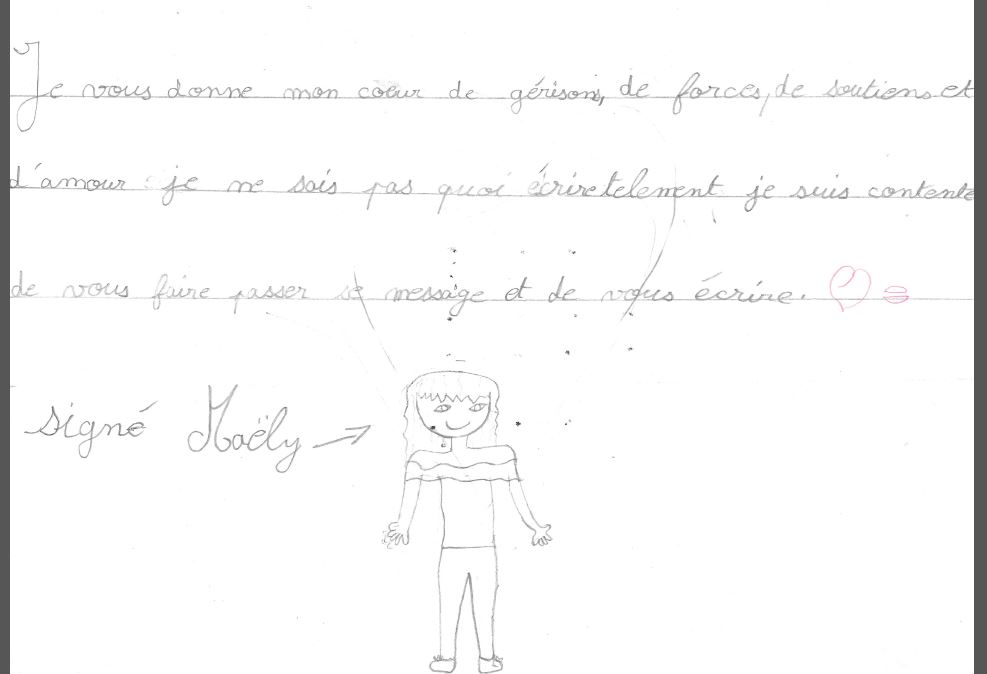 Je vous donne mon coeur de gérisons, de forces, de soutiens et
d'amour je ne sais pas quoi écrire telement je suis contente
de vous faire passer se message et de vous écrire.
signé Maëly